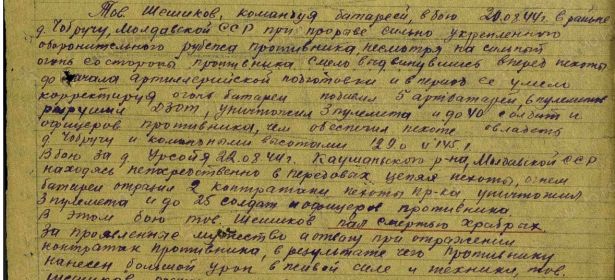 Тов. Шешиков, командуя батареей, в бою 20.08.44г. в районе
д. Чобручу, Молдавской ССР при прорыве сильно укрепленного
оборонительного рубежа противника, несмотря на сильный
огонь со стороны противника смело выдвинувшись вперед пехоты
до начала артиллерийской подготовки и в период ее умело
корректируя огонь батареи подавил 5 артбатарей, пулеметов
разрушил ДЗОТ, уничтожил 3 пулемета и до 40 солдат и
офицеров противника, чем обеспечил пехоте овладеть
д. Чобручу и командными высотами 129.0 и 145.1
В бою за д. Урсойя 22.08.44г. Каушанского р-на, Молдавской ССР
находясь непосредственно в передовых цепях пехоты, огнем
батареи отразил 2 контратаки пехоты пр-ка уничтожил
3 пулемета и до 25 солдат и офицеров противника.
В этом бою тов. Шешиков пал смертью храбрых.
За проявленное мужество и отвагу при отражении
контратак противника, в результате чего противнику
нанесен большой урон в живой силе и технике, тов.
Шешиков